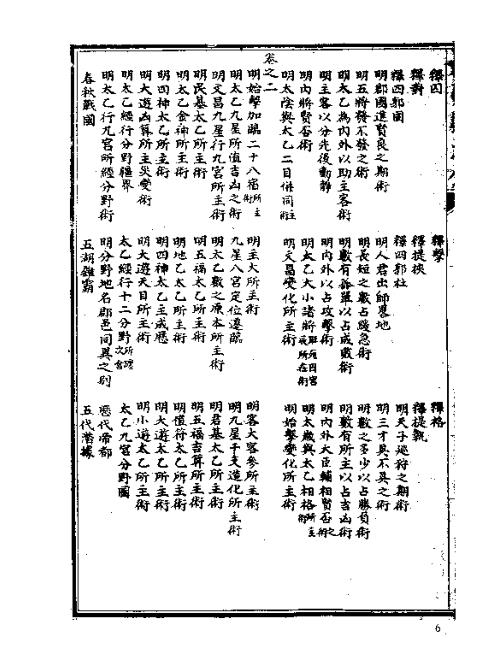 釋囚　釋擊　釋格
釋對　釋提挾　釋提執
釋四郭固　釋四郭杜　明天子巡狩之期術
明郡國進賢良之期術　明人君出師墓地　明三才具不具之術
明五將發不發之術　明長短之數占緩急術　明數之多少以占勝負術
明太乙為內外以助主客術　明數有以占成敗術　明數有所主以占吉凶術
明主客以分先後動靜　明內外以占攻擊術　明內外大臣輔相賢否之術
明內將賢否術　明太乙大小諸將四宮辰所在術　明太歲與太乙相格所主術
明太陰與太乙二目併同所主術　明文昌變化所主術　明始擊變化所主術
卷之二
明始擊加臨二十八宿所主術　明主大所主術　明客大客參所主術
明太乙九星所值吉凶之術　九星八宮定位遠臨　明九星干支造化所主術
明文昌九星行九宮所主術　明太乙數之原本所主術　明君基太乙所主術
明民基太乙所主術　明五福太乙所主術　明五福吉算所主術
明太乙食神所主術　明地乙太乙所主術　明值符太乙所主術
明四神太乙所主術　明四神太乙主成應　明大遊太乙所主術
明大遊凶算所主災變術　明大遊天目所主術　明小遊太乙所主術
明太乙經行分野疆界　太乙經行十二分野所臨次舍　太乙九宮分野圖
明太乙行九宮所經分野術　明分野地名郡邑同異之別　歷代帝都
春秋戰國　五湖雜霸　五代潛據
6